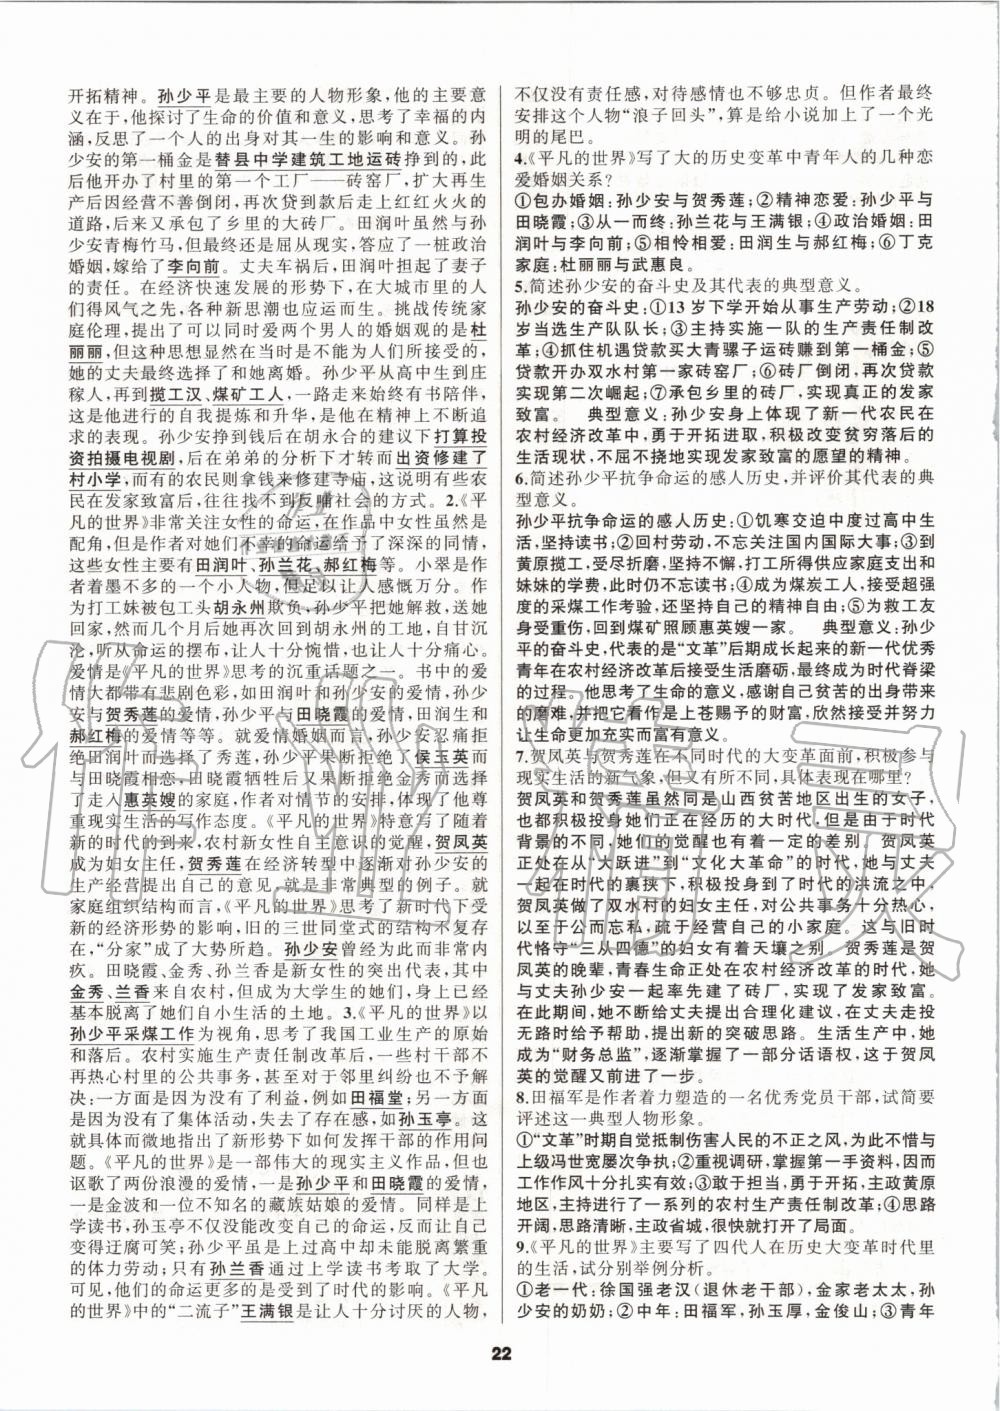 开拓精神。孙少平是最主要的人物形象,他的主要意
义在于,他探讨了生命的价值和意义,思考了幸福的内
涵,反思了一个人的出身对其一生的影响和意义。孙
少安的第一桶金是替县中学建筑工地运砖挣到的,此
后他开办了村里的第一个工厂——砖窑厂,扩大再生
产后因经营不善倒闭,再次贷到款后走上红红火火的
道路,后来又承包了乡里的大砖厂。田润叶虽然与孙
少安青梅竹马,但是最后屈从现实,答应了一桩政治
婚姻,嫁给了李向前。丈夫车祸后,田润叶担起了妻子
的责任。在经济快速发展的形势下,在大城市里的人
们得风气之先,各种新思潮也应运而生。挑战传统家
庭伦理,提出了可以同时爱两个男人的婚姻观的是杜
丽丽,但这种思想显然在当时是不能为人们所接受的,
她的丈夫最终选择了和她离婚。孙少平从高中生到庄
稼人,再到揽工汉、煤矿工人,一路走来始终有书陪伴,
这是他进行的自我提炼和升华,是他在精神上不断追
求的表现。孙少安挣到钱后在胡永合的建议下打算投
资拍摄电视剧,后在弟弟的分析下才转而出资修建了
村小学,而有的农民则拿钱来修建寺庙,这说明有些农
民在发家致富后,往往找不到反哺社会的方式。2.《平
凡的世界》非常关注女性的命运,在作品中女性虽然是
配角,但是作者对她们不幸的命运给予了深深的同情,
这些女性主要有田润叶、孙兰花、郝红梅等。小翠是作
者着墨不多的一个小人物,但足以让人感慨万分。作
为打工妹被包工头胡永州欺负,孙少平把她解救,送她
回家,然而几个月后她再次回到胡永州的工地,自甘沉
沦,听从命运的摆布,让人十分惋惜,也让人十分痛心。
爱情是《平凡的世界》思考的沉重话题之一。书中的爱
情大都带有悲剧色彩,如田润叶和孙少安的爱情,孙少
安与贺秀莲的爱情,孙少平与田晓霞的爱情,田润生和
郝红梅的爱情等等。就爱情婚姻而言,孙少安忍痛拒
绝田润叶而选择了秀莲,孙少平果断拒绝了侯玉英而
与田晓霞相恋,田晓霞牺牲后又果断拒绝金秀而选择
了走入惠英嫂的家庭,作者对情节的安排,体现了尊重
现实生活的写作态度。《平凡的世界》特意写了随着
新的时代的到来,农村新女性自主意识的觉醒,贺凤英
成为妇女主任,贺秀莲在经济转型中逐渐对孙少安的
生产经营提出自己的意见,就是非常典型的例子。就
家庭组织结构而言,《平凡的世界》思考了新时代下受
新的经济形势的影响,旧的三世同堂式的结构不复存
在,“分家”成了大势所趋。孙少安曾经为此而非常内
疚。田晓霞、金秀、孙兰香是新女性的突出代表,其中
金秀、兰香来自农村,但成为大学生的她们,身上已经
基本脱离了她们自小生活的土地。3.《平凡的世界》以
孙少平采煤工作为视角,思考了我国工业生产的原始
和落后。农村实施生产责任制改革后,一些村干部不
再热心村里的公共事务,甚至对于邻里纠纷也不予理
会:一方面是因为没有了利益,例如田福堂;另一方面
是因为没有了集体活动,失去了存在感,如孙玉亭。这
就具体而微地指出了新形势下如何发挥干部的作用问
题。《平凡的世界》是一部伟大的现实主义作品,但也
讴歌了两份浪漫的爱情,一是孙少平和田晓霞的爱情,
一是金波和一位不知名的藏族姑娘的爱情。同样是上
学读书,孙玉亭不仅没能改变自己的命运,反而让自己
变得迂腐可笑;孙少平虽上过高中却未能脱离繁重
的体力劳动;只有孙兰香通过上学读书考取了大学。
可见,他们的命运更多的是受到了时代的影响。《平凡
的世界》中的“二流子”王满银是让人十分讨厌的人物,
不仅没有责任感,对待感情也不够忠贞。但作者最终
安排这个人物“浪子回头”,算是给小说加上了一个光
明的尾巴。
4.《平凡的世界》写了大的历史变革中青年人的几种恋
爱婚姻关系?
①包办婚姻:孙少安与贺秀莲;②精神恋爱:孙少平与
田晓霞;③从一而终:孙兰花与王满银;④政治婚姻:田
润叶与李向前;⑤相怜相爱:田润生与郝红梅;⑥丁克
家庭:杜丽丽与武惠良。
5.简述孙少安的奋斗史及其代表的典型意义。
孙少安的奋斗史:①13岁下学开始从事生产劳动;②18
岁当选生产队队长;③主持实施一队的生产责任制改
革;④抓住机遇贷款买大青骡子运砖赚到第一桶金;⑤
贷款开办双水村第一家砖窑厂;⑥砖厂倒闭,再次贷款
实现第二次崛起;⑦承包乡里的砖厂,实现真正的发家
致富。 典型意义:孙少安身上体现了新一代农民在
农村经济改革中,勇于开拓进取,积极改变贫穷落后的
生活现状,不屈不挠实现发家致富的愿望的精神。
6.简述孙少平抗争命运的感人历史,并评价其代表的典
型意义。
孙少平抗争命运的感人历史:①饥寒交迫中度过高中生
活,坚持读书;②回村劳动,不忘关注国内国际大事;③到
黄原揽工,受尽折磨,坚持不懈,打工所得供应家庭支出和
妹妹的学费,此时仍不忘读书;④成为煤炭工人,接受超强
度的采煤工作考验,还坚持自己的精神自由;⑤为救工友
身受重伤,回到煤矿照顾惠英嫂一家。 典型意义:孙少
平的奋斗史,代表的是“文革”后期成长起来的新一代优秀
青年在农村经济改革后接受生活磨砺,最终成为时代脊梁
的过程。他思考了生命的意义,感谢自己贫苦的出身带来
的磨难,并把它看作是上苍赐予的财富,欣然接受并努力
让生命更加充实而富有意义。
7.贺凤英与贺秀莲在不同时代的大变革面前,积极参与
现实生活的新气象,但又有所不同,具体表现在哪里?
贺凤英和贺秀莲虽然同是山西贫苦地区出生的女子,
也都积极投身她们正在经历的大时代,但由于时代
背景的不同,她们的觉醒也有着一定的差别。贺凤英
正处在从“大跃进”到“文化大革命”的时代,她与丈夫
一起在时代的裹挟下,积极投身到了时代的洪流之中,
贺凤英做了双水村的妇女主任,对公共事务十分热心,
以至于公而忘私,疏于经营自己的小家庭。这与旧时
代恪守“三从四德”的妇女有着天壤之别。贺秀莲是贺
凤英的晚辈,青春生命正处在农村经济改革的时代,她
与丈夫孙少安一起率先建了砖厂,实现了发家致富。
在此期间,她不断给丈夫提出合理化建议,在丈夫走投
无路时给予帮助,提出新的突破思路。生活生产中,她
成为“财务总监”,逐渐掌握了一部分话语权,这于贺凤
英的觉醒又前进了一步。
8.田福军是作者着力塑造的一名优秀党员干部,试简要
评述这一典型人物形象。
①“文革”时期自觉抵制伤害人民的不正之风,为此不惜与
上级冯世宽屡次争执;②重视调研,掌握第一手资料,因而
工作作风十分扎实有效;③敢于担当,勇于开拓,主政黄原
地区,主持进行了一系列的农村生产责任制改革;④思路
开阔,思路清晰,主政省城,很快就打开了局面。
9.《平凡的世界》主要写了四代人在历史大变革时代里
的生活,试分别举例分析。
①老一代:徐国强老汉(退休老干部),金家老太太,孙
少安的奶奶;②中年:田福军,孙玉厚,金俊山;③青年
22